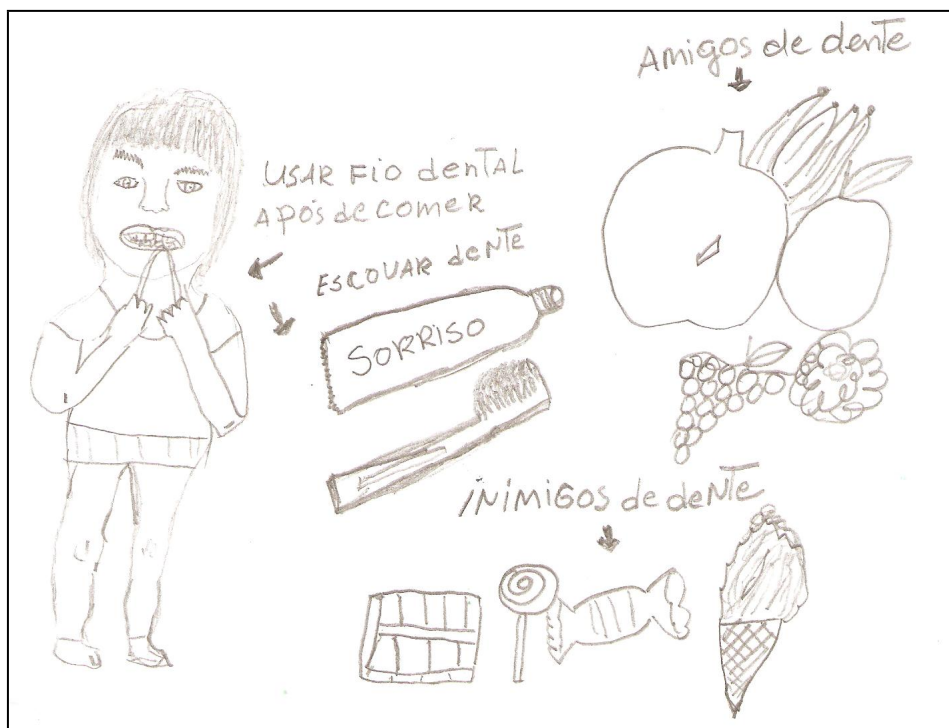 Amigos de dente
USAR FIO dENTAL
APÓS de COMER
ESCOVAR deNTE
SORRISO
iNiMiGOS de deNTE